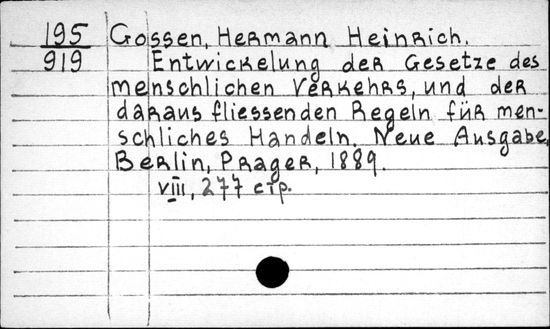 195 Gossen, Hermann Heinrich.
919 Entwickelung der Gesetze des
menschlichen Verkehrs, und der
daraus fliessenden Regeln für men-
schliches Handeln. Neue Ausgabe,
Berlin, Prager, 1889.
VIII, 277 стр.